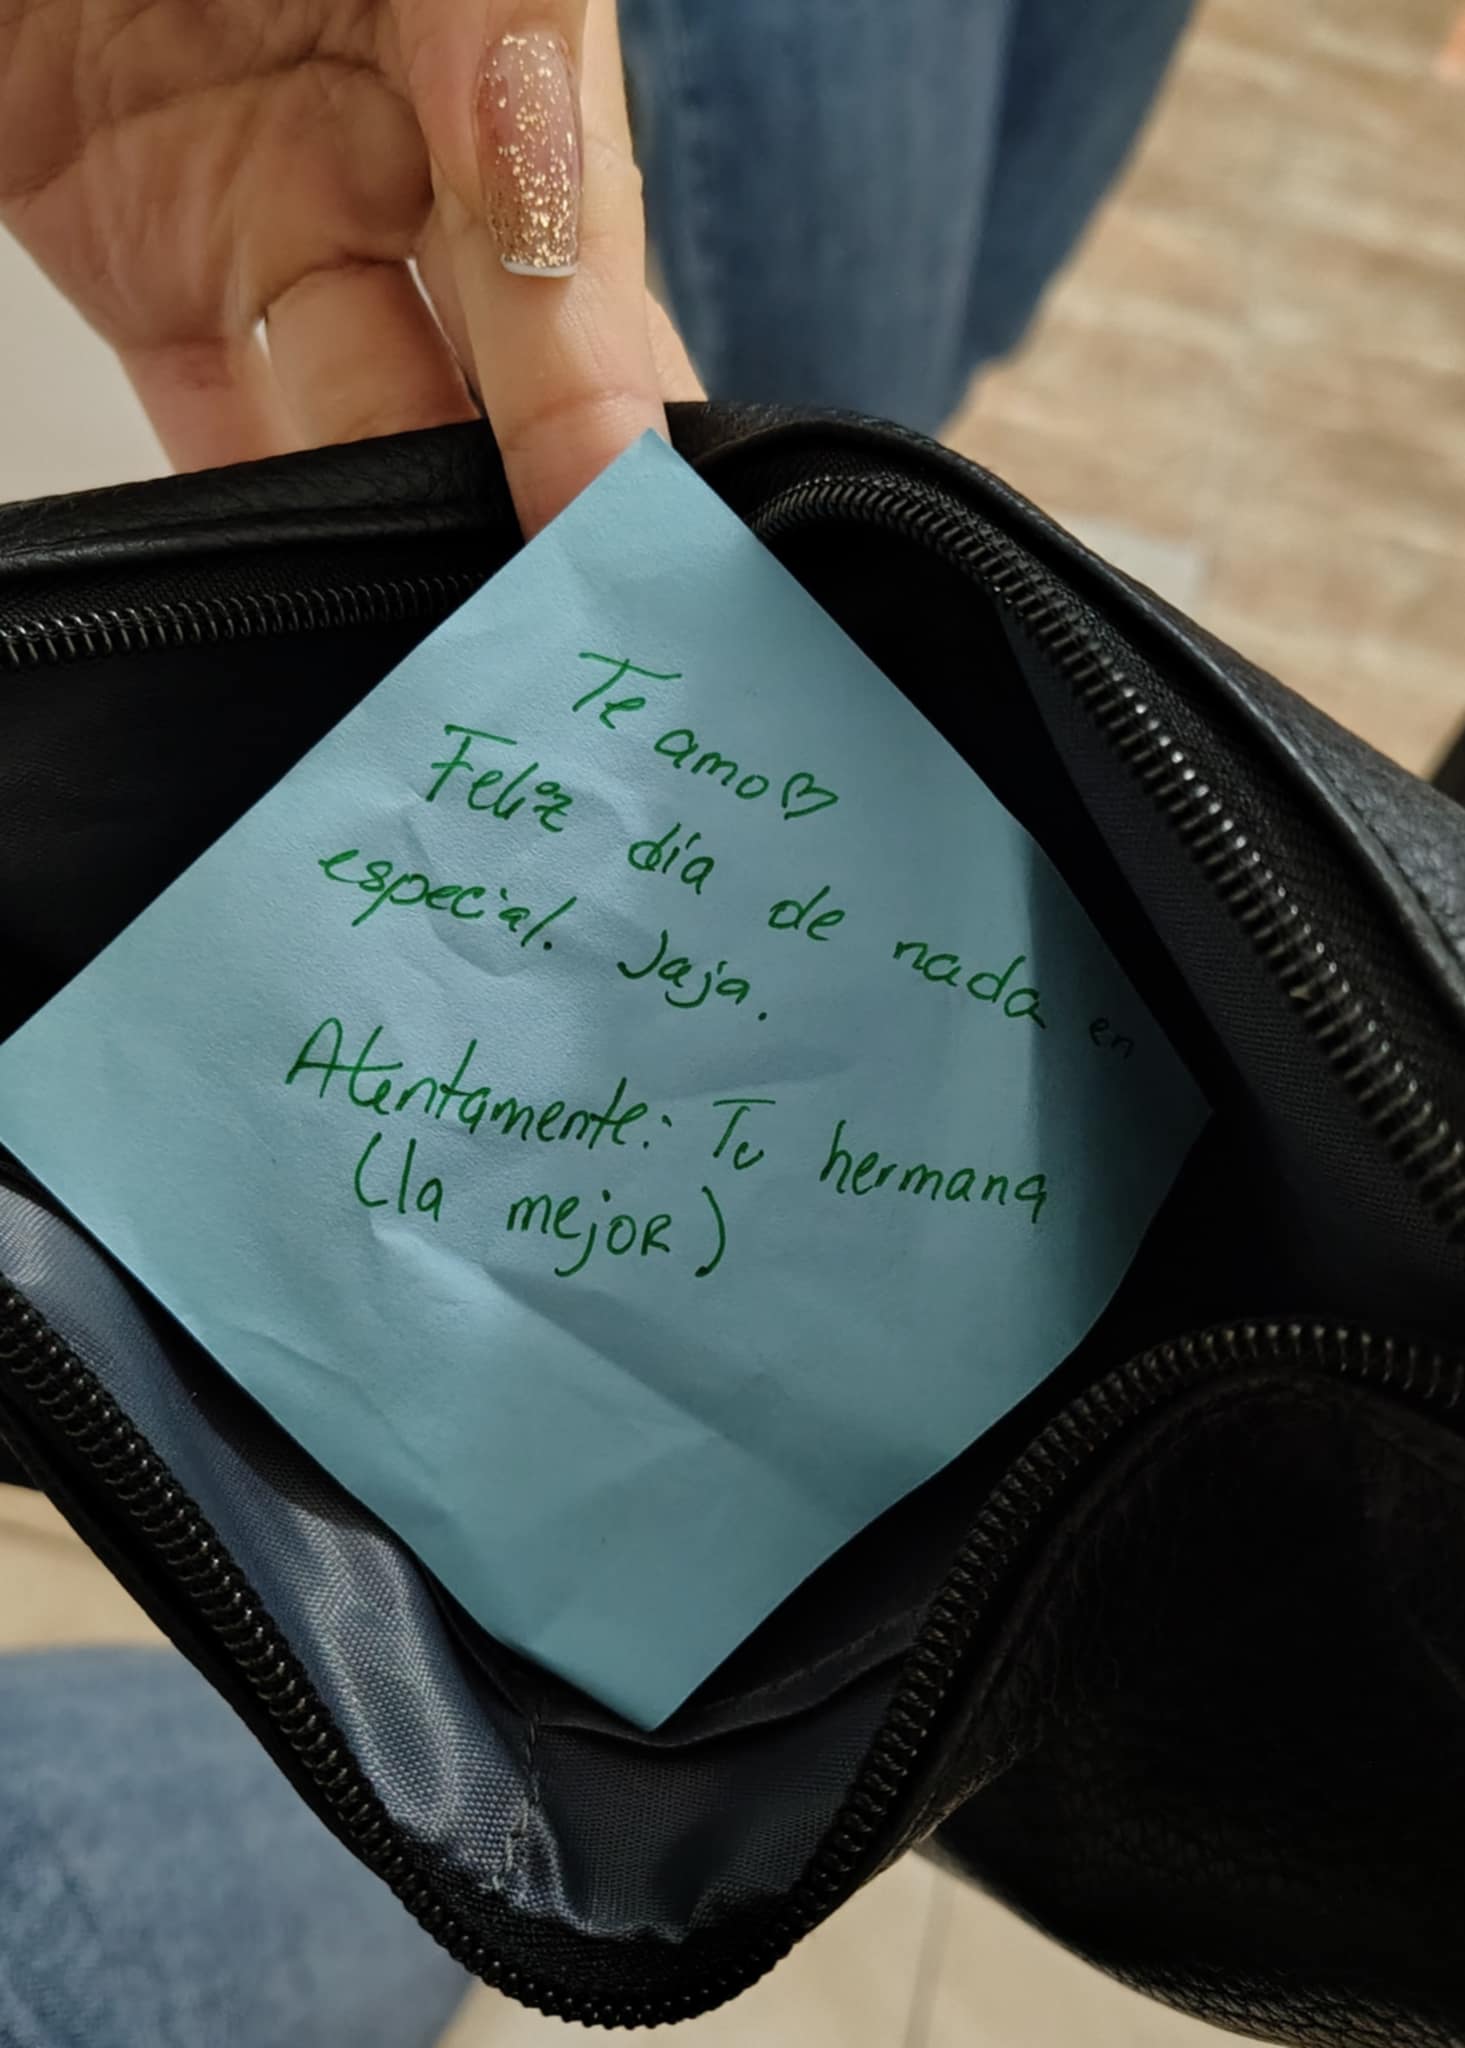 Te amo♡
Feliz día de nada en
especial. Jaja.
Atentamente: Tu hermana
(la mejor)